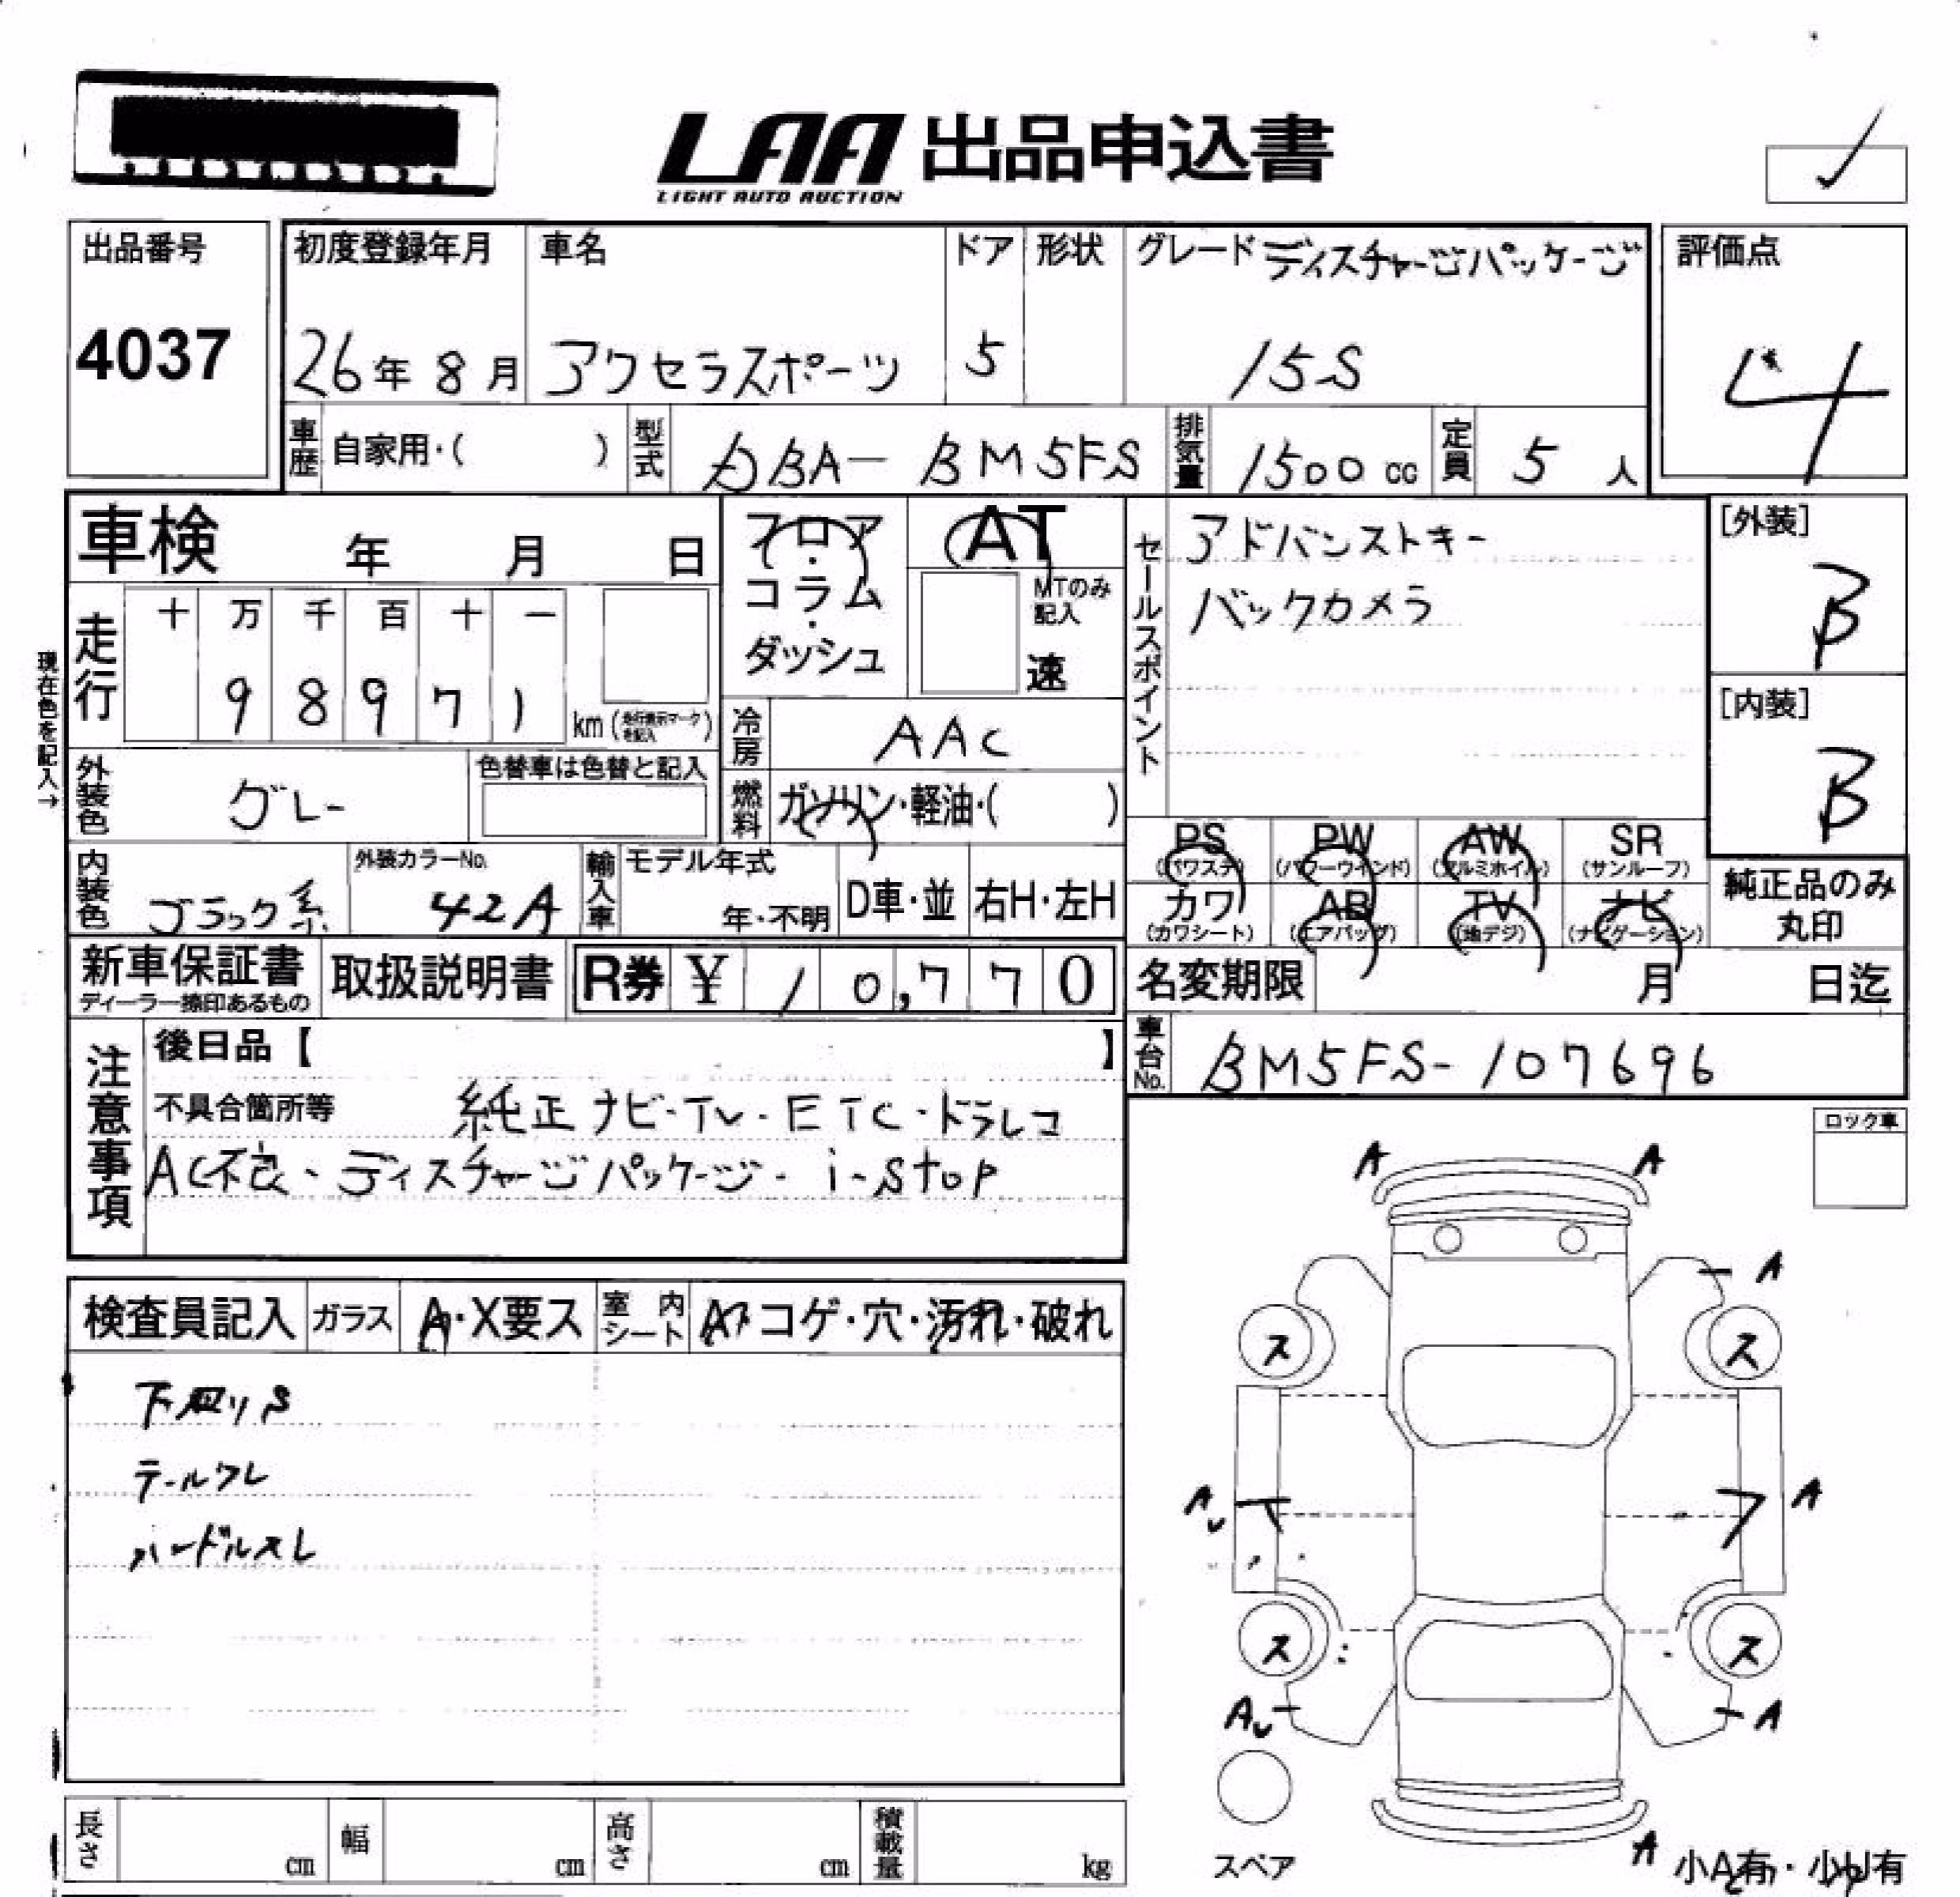 LAA 出品申込書
LIGHT AUTO AUCTION
出品番号
4037
初度登録年月 車名 ドア 形状 グレード ディスチャージパッケージ
26年 8月 アクセラスポーツ 5 15S
評価点
4
車歴 自家用・( ) 型式 DBA-BM5FS 排気量 1500cc 定員 5人
車検 年 月 日
フロア・コラム・ダッシュ
AT
MTのみ記入
速
セールスポイント
アドバンストキー
バックカメラ
[外装]
B
[内装]
B
現在色を記入→
走行 十 万 千 百 十 一
9 8 9 7 1 km (走行表示マークを記入)
冷房 AAC
外装色 グレー 色替車は色替と記入
燃料 ガソリン・軽油・( )
内装色 ブラック系 外装カラーNo. 42A 輸入車 モデル年式 年・不明 D車・並 右H・左H
PS (パワステ) PW (パワーウインド) AW (アルミホイル) SR (サンルーフ)
カワ (カワシート) AB (エアバッグ) TV (地デジ) ナビ (ナビゲーション)
純正品のみ丸印
新車保証書 ディーラー捺印あるもの 取扱説明書 R券 ¥ 10,770
名変期限 月 日迄
車台No. BM5FS-107696
注意事項
後日品【 】
不具合箇所等 純正ナビ・TV・ETC・ドラレコ
AC不良、ディスチャージパッケージ・i-stop
ロック車
検査員記入 ガラス A・X要ス 室内シート コゲ・穴・汚れ・破れ
下廻りS
テールワレ
ハンドルスレ
A A
A
ス ス
A
A
ス ス
A
スペア
A 小A有・小U有
長さ cm 幅 cm 高さ cm 積載量 kg